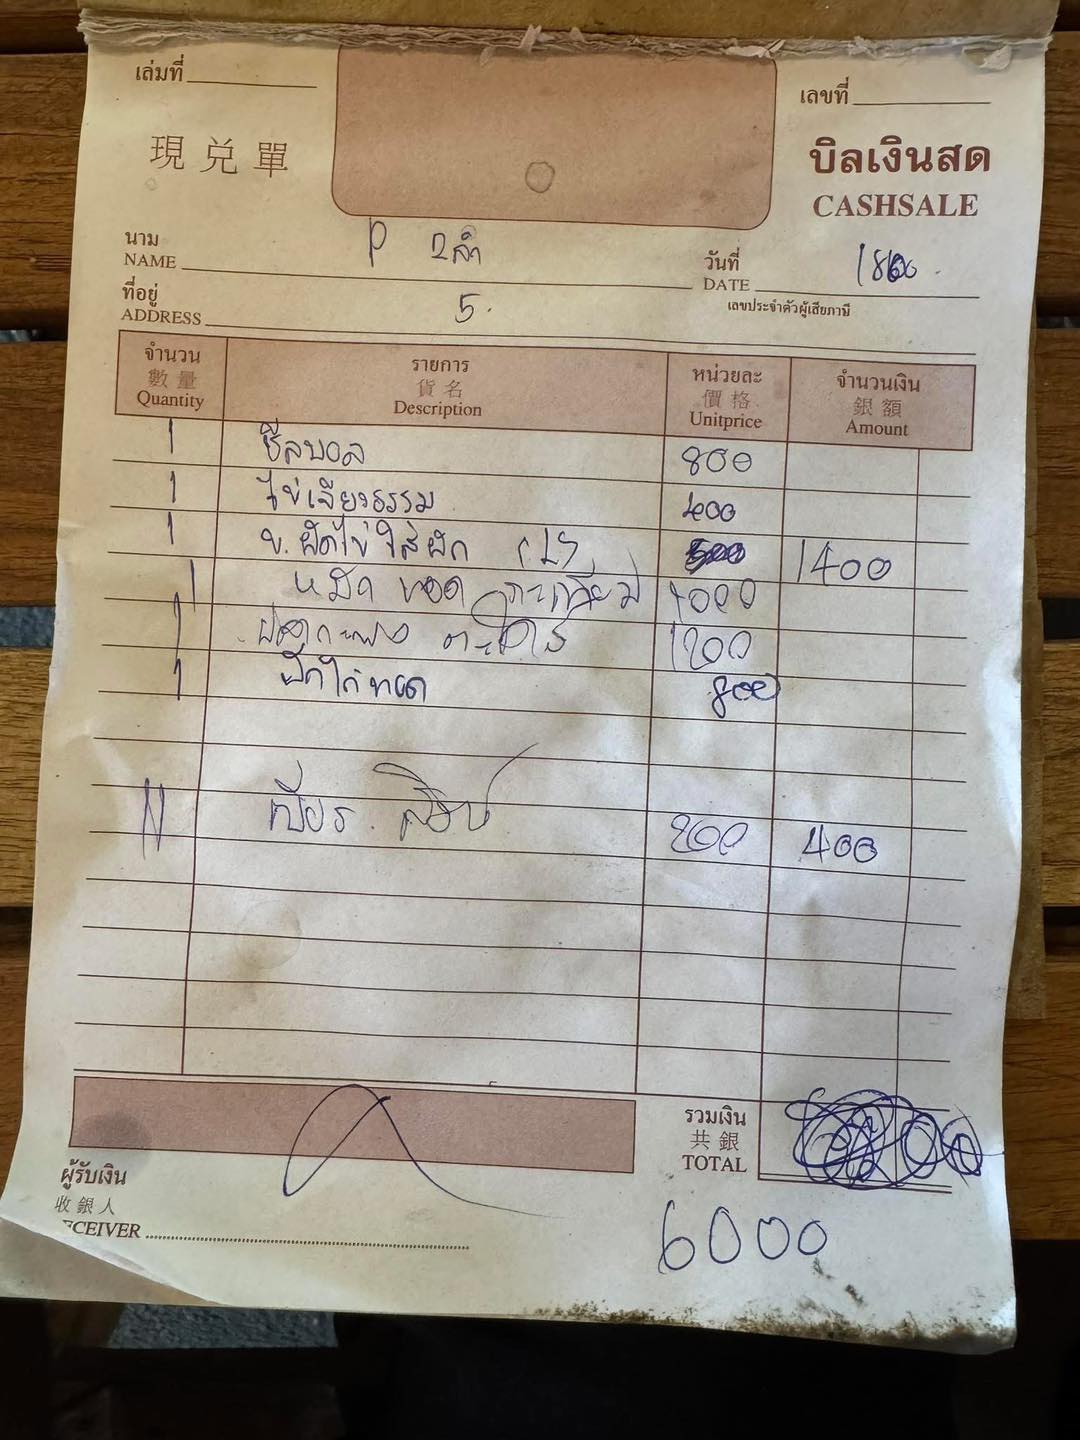 เล่มที่
เลขที่
現兌單
บิลเงินสด
CASHSALE
นาม
NAME
P 2ลำ
วันที่
DATE
ที่อยู่
ADDRESS
5.
เลขประจำตัวผู้เสียภาษี
จำนวน รายการ หน่วยละ จำนวนเงิน
數量 貨名 價格 銀額
Quantity Description Unitprice Amount
1 ชีสบอล 800
1 ไข่เจียวธรรม 400
1 ข. ผัดไข่ ใส่ผัก 1400
1 หมึก ทอด กระเทียม 1000
1 ตะไคร้ 1200
1 ปีกไก่ทอด 800
เบียร สิงห์ 200 400
รวมเงิน
共銀
TOTAL
ผู้รับเงิน
收銀人
ECEIVER
6000